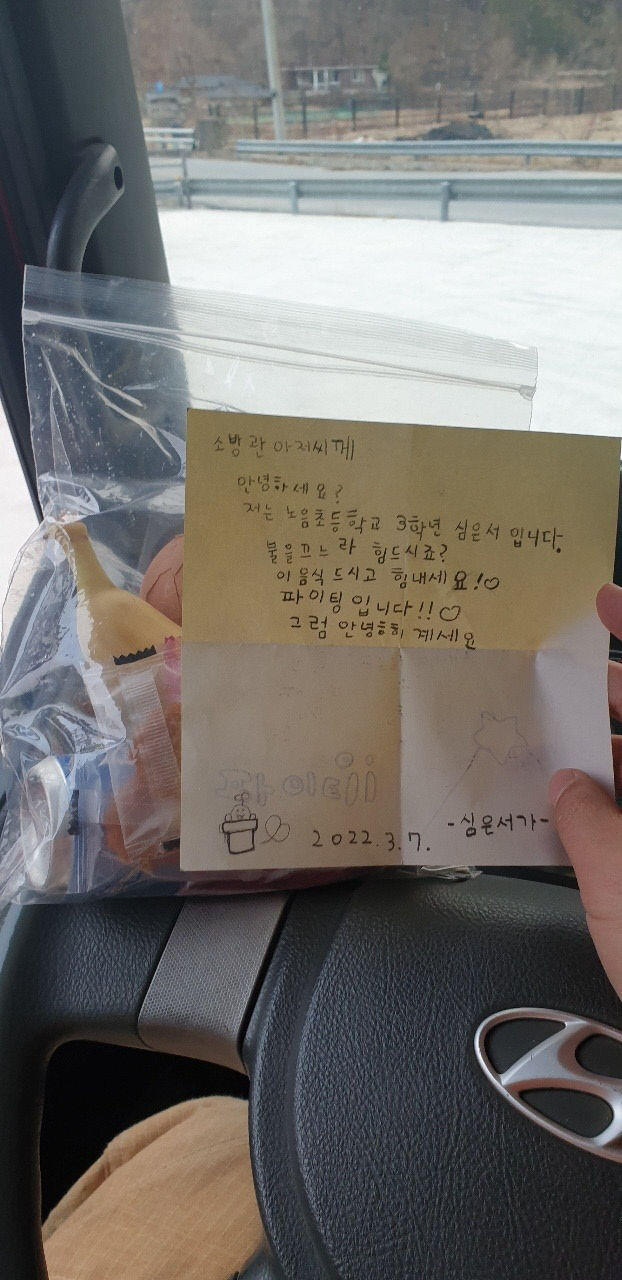 소방관 아저씨께
안녕하세요?
저는 노음초등학교 3학년 심은서 입니다.
불을끄느라 힘드시죠?
이 음식 드시고 힘내세요!♡
파이팅 입니다!!♡
그럼 안녕히 계세요
2022.3.7.
-심은서가-